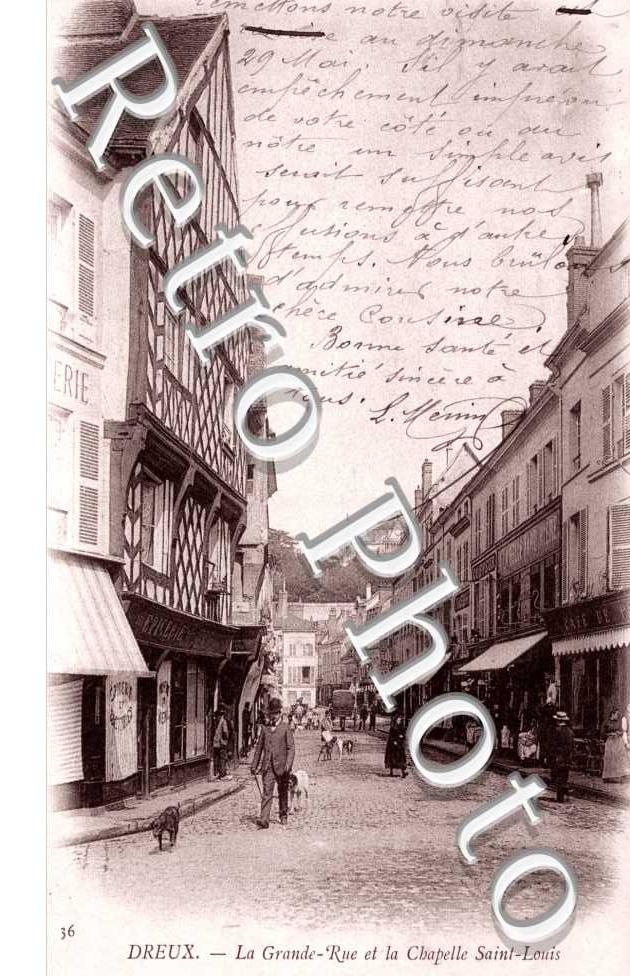 remettons notre visite
au dimanche
29 Mai. S'il y avait
empêchement imprévu
de votre côté ou du
nôtre un simple avis
serait suffisant
pour remettre nos
effusions à d'autre
temps. Nous brûlons
d'admirer notre
chère Cousine,
Bonne santé et
amitié sincère à
tous.
ERIE
EPICERIE
CAFÉ DE
Retro Photo
36
DREUX. — La Grande-Rue et la Chapelle Saint-Louis